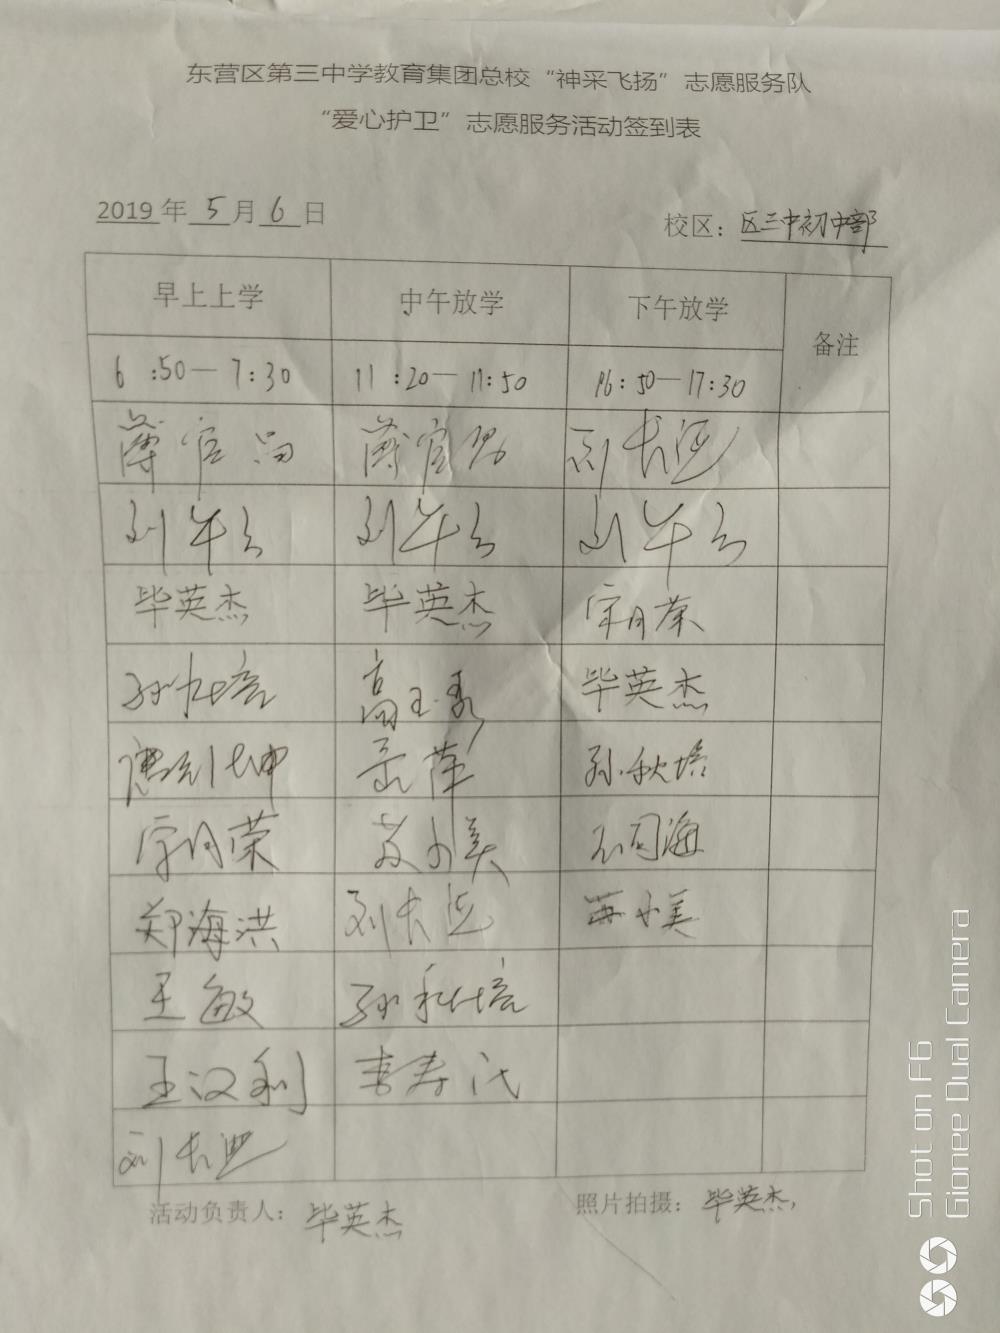 东营区第三中学教育集团总校“神采飞扬”志愿服务队
“爱心护卫”志愿服务活动签到表
2019年 5 月 6 日 校区：区三中初中部
早上上学 中午放学 下午放学 备注
6:50—7:30 11:20—11:50 16:50—17:30
薄官 薄官 刘长
刘午云 刘午云 刘午云
毕英杰 毕英杰 宗月荣
孙秋培 高玉秀 毕英杰
坤 岳萍 孙秋培
宗月荣 苏小美 海
郑海洪 刘长 苏小美
王敏 孙秋培
王汉利 李寿
刘长
活动负责人：毕英杰 照片拍摄：毕英杰
Shot on F6
Gionee Dual Camera